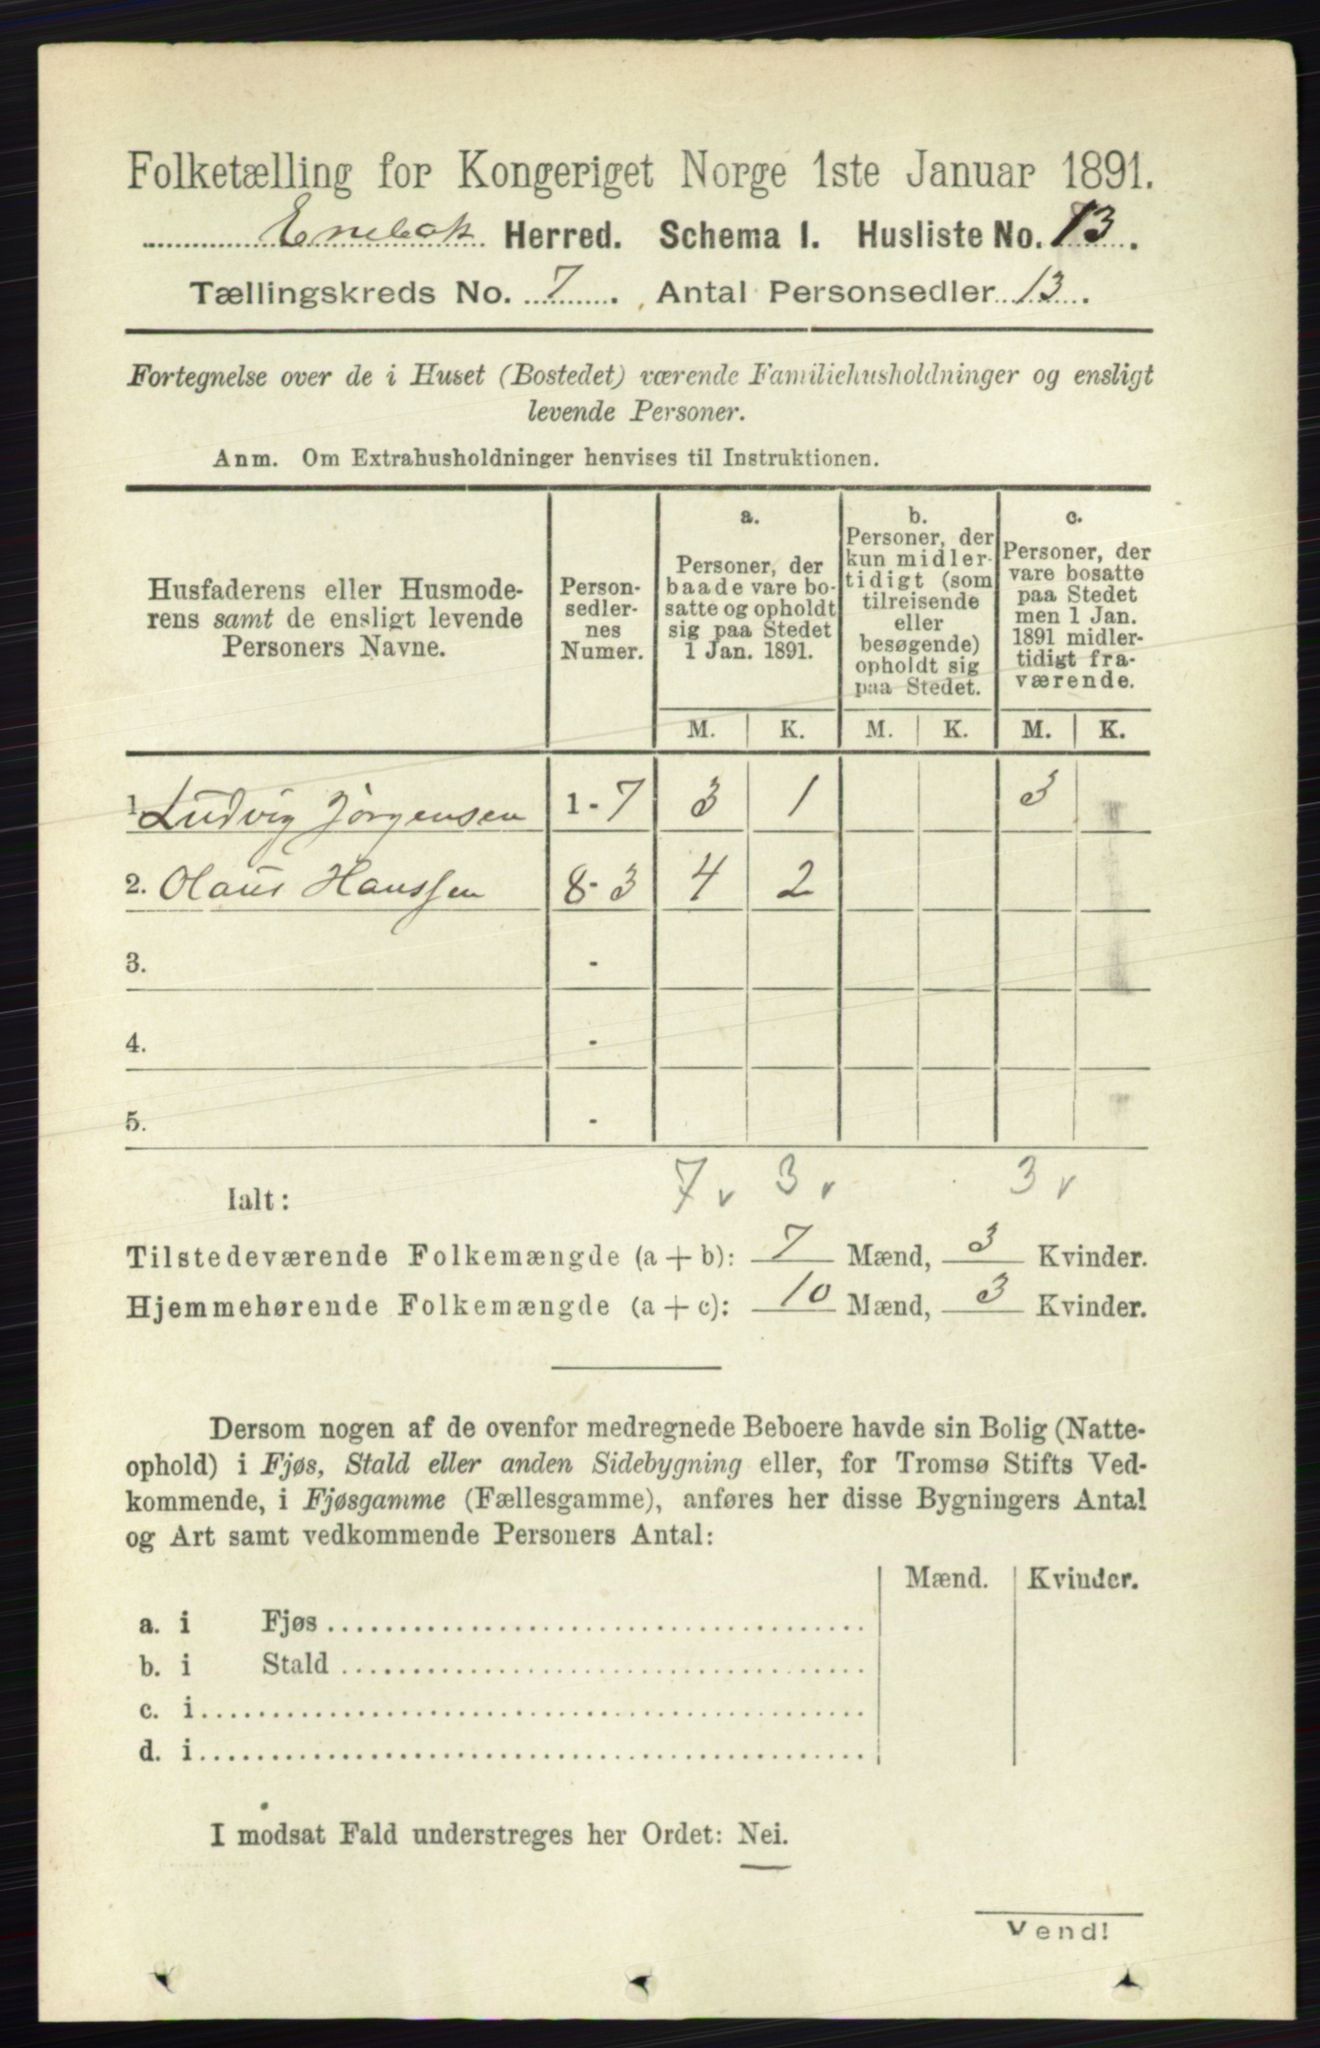 Folketælling for Kongeriget Norge 1ste Januar 1891.
Enebak Herred. Schema I. Husliste No. 13.
Tællingskreds No. 7. Antal Personsedler 13.
Fortegnelse over de i Huset (Bostedet) værende Familiehusholdninger og ensligt
levende Personer.
Anm. Om Extrahusholdninger henvises til Instruktionen.
Husfaderens eller Husmode-
rens samt de ensligt levende
Personers Navne.
Person-
sedler-
nes
Numer.
a.
Personer, der
baade vare bo-
satte og opholdt
sig paa Stedet
1 Jan. 1891.
b.
Personer, der
kun midler-
tidigt (som
tilreisende
eller
besøgende)
opholdt sig
paa Stedet.
c.
Personer, der
vare bosatte
paa Stedet
men 1 Jan.
1891 midler-
tidigt fra-
værende.
M. K. M. K. M. K.
1. Ludvig Jørgensen 1 - 7 3 1 3
2. Olaus Hanssen 8 - 3 4 2
3. -
4. -
5. -
Ialt: 7 v 3 v 3 v
Tilstedeværende Folkemængde (a + b): 7 Mænd, 3 Kvinder.
Hjemmehørende Folkemængde (a + c): 10 Mænd, 3 Kvinder.
Dersom nogen af de ovenfor medregnede Beboere havde sin Bolig (Natte-
ophold) i Fjøs, Stald eller anden Sidebygning eller, for Tromsø Stifts Ved-
kommende, i Fjøsgamme (Fællesgamme), anføres her disse Bygningers Antal
og Art samt vedkommende Personers Antal:
Mænd. Kvinder.
a. i Fjøs
b. i Stald
c. i
d. i
I modsat Fald understreges her Ordet: Nei.
Vend!